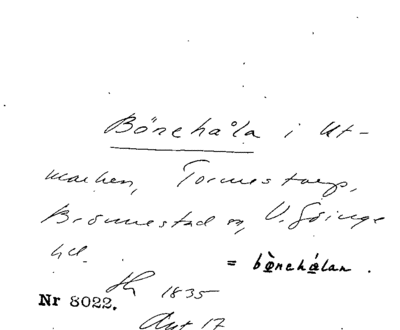 Bönehåla i Ut-
marken, Tormestorp,
Brönnestad sn, V. Göinge
hd.
= bö̀nehǻlan .
1835
Nr 8022.
17